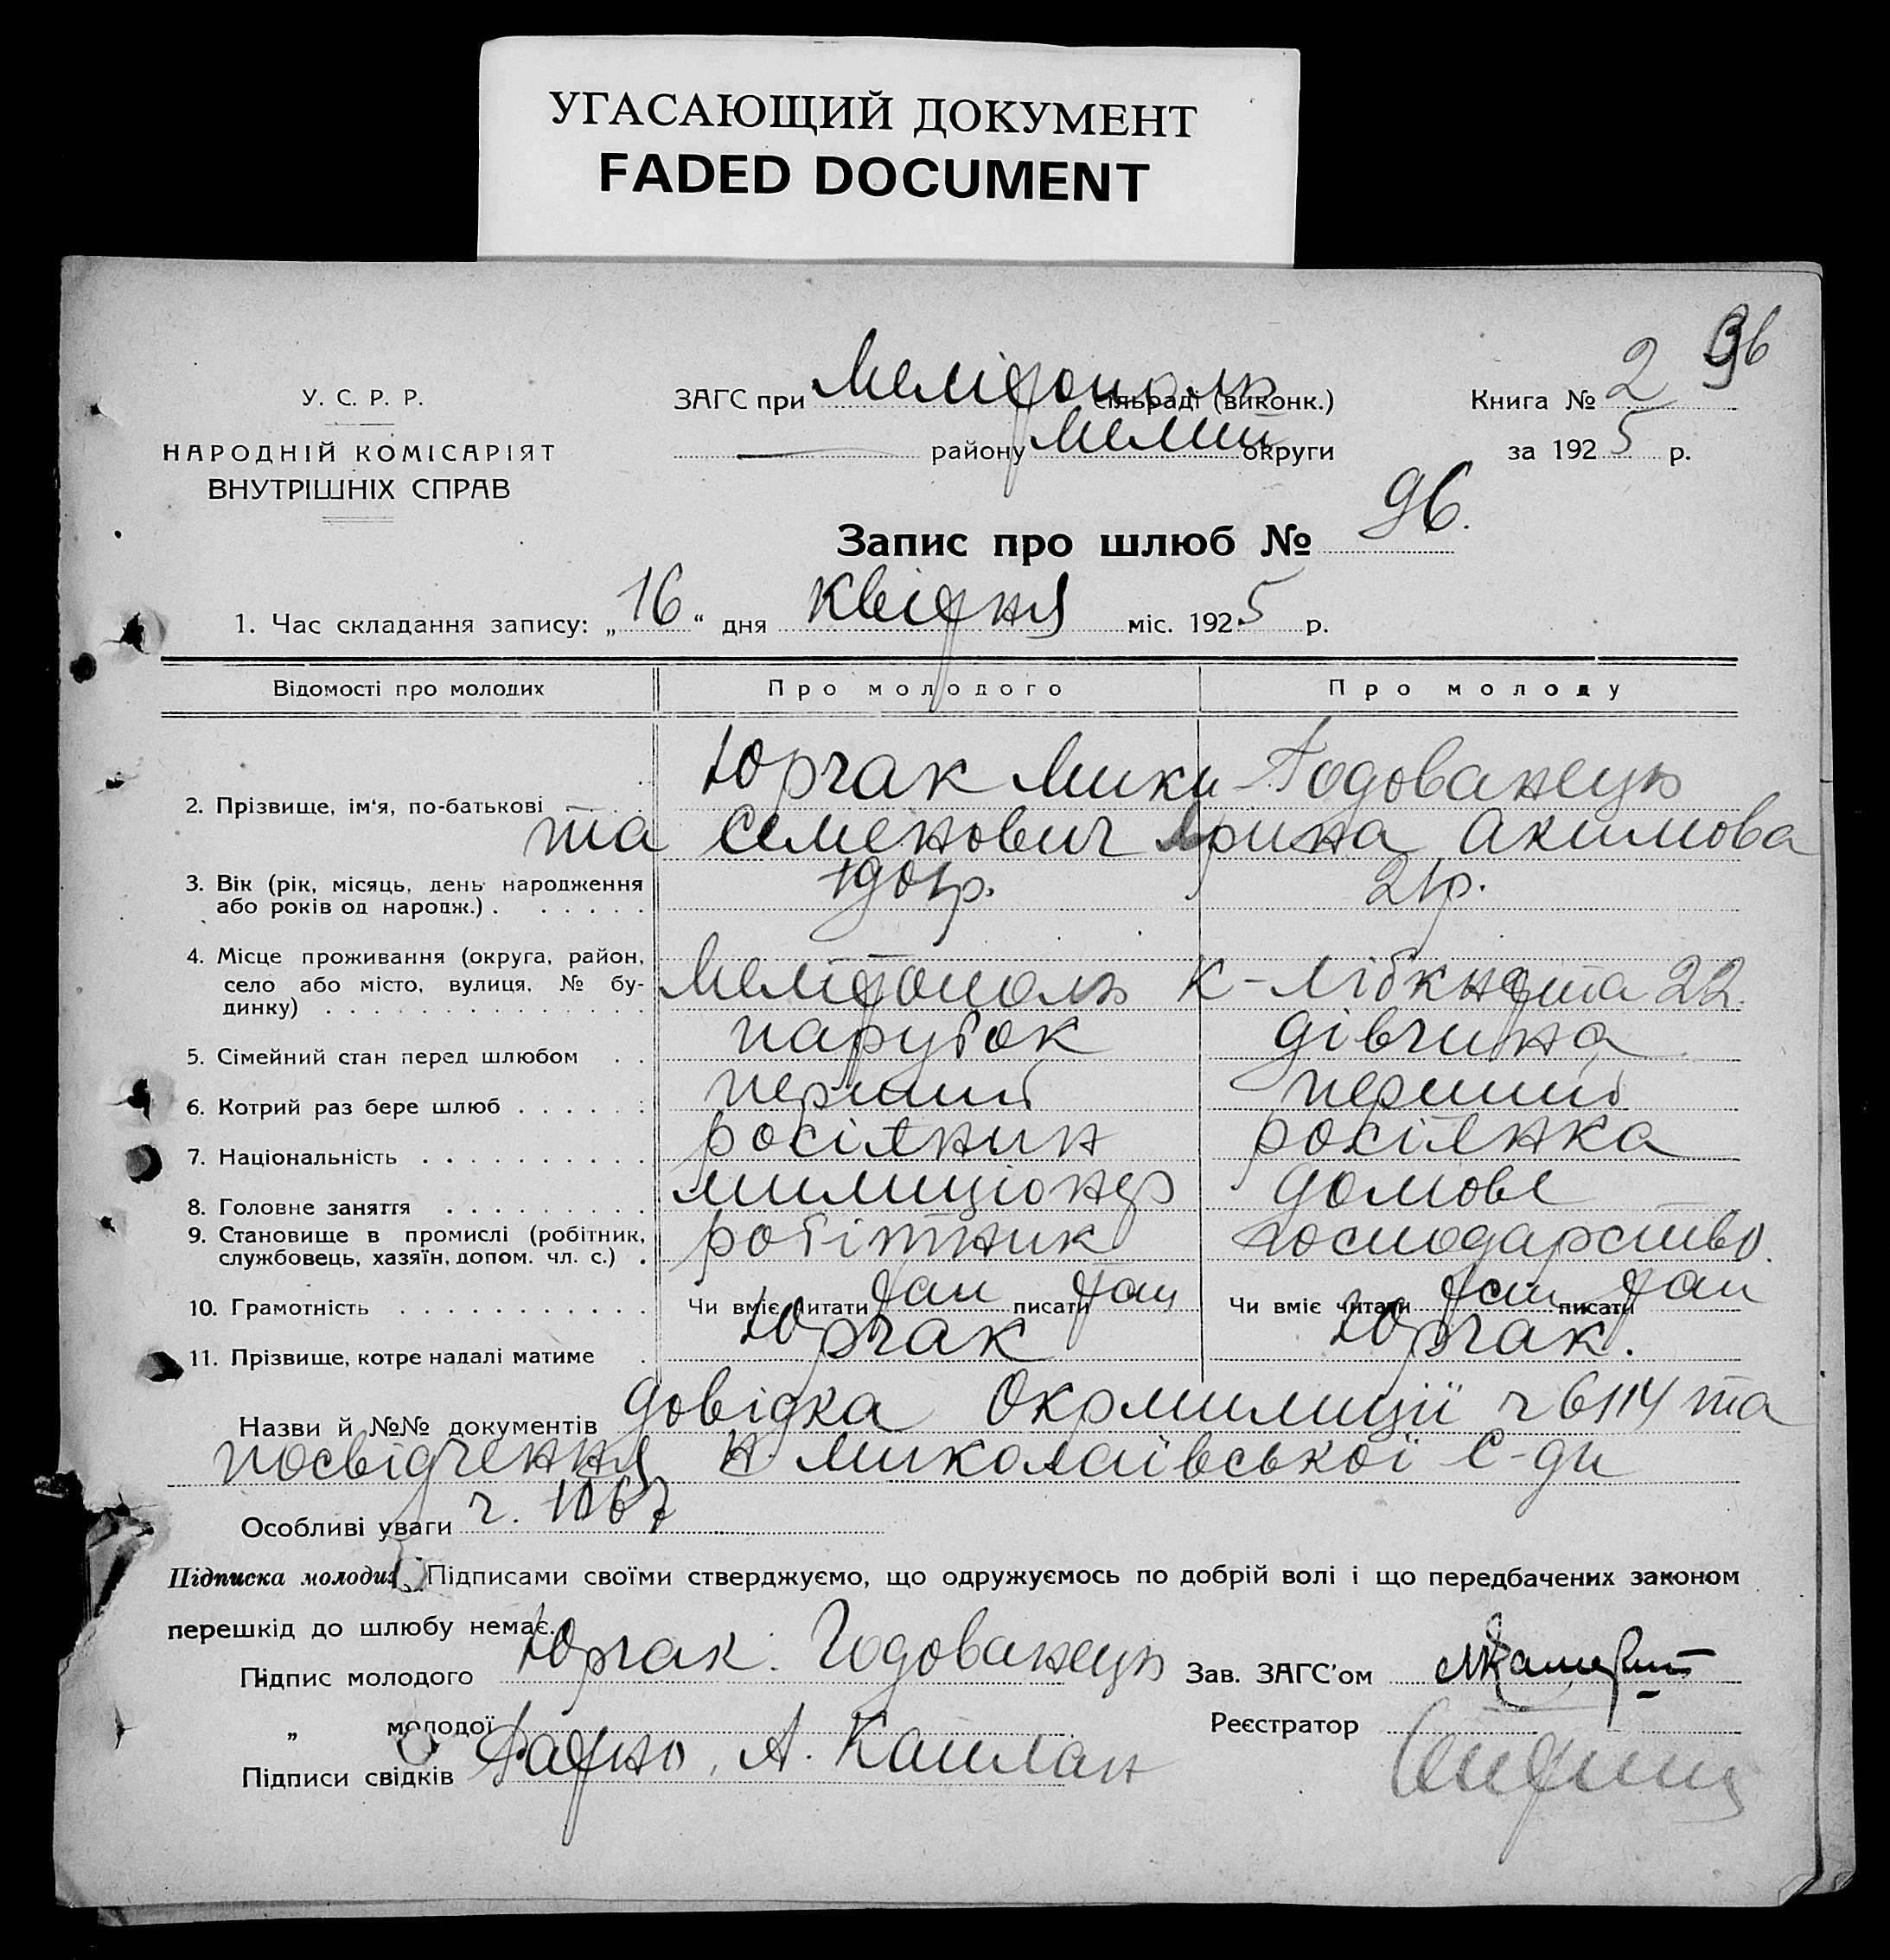 УГАСАЮЩИЙ ДОКУМЕНТ
FADED DOCUMENT
96
У. С. Р. Р.
НАРОДНІЙ КОМІСАРІЯТ
ВНУТРІШНІХ СПРАВ
ЗАГС при Мелітополь сільраді (виконк.)
району Мелит округи
Книга № 2
за 1925 р.
Запис про шлюб № 96.
1. Час складання запису: „16“ дня квітня міс. 1925 р.
Відомості про молодих Про молодого Про молоду
2. Прізвище, ім‘я, по-батькові Юрчак Мики- Годованець
та Семенович Ярина Акимова
3. Вік (рік, місяць, день народження
або років од народж.) 1901р. 21р.
4. Місце проживання (округа, район,
село або місто, вулиця, № бу-
динку) Мелітополь К-Лібкнехта 22.
5. Сімейний стан перед шлюбом парубок дівчина
6. Котрий раз бере шлюб перший перший
7. Національність росіянин росіянка
8. Головне заняття милиціонер домове
9. Становище в промислі (робітник,
службовець, хазяїн, допом. чл. с.) робітник господарство.
10. Грамотність Чи вміє читати так писати так Чи вміє читати так писати так
11. Прізвище, котре надалі матиме Юрчак Юрчак.
Назви й №№ документів довідка Окрмилиції ч 6114 та
посвідчення Н. Миколаївської С-ди
Особливі уваги ч. 1167
Підписка молодих Підписами своїми стверджуємо, що одружуємось по добрій волі і що передбачених законом
перешкід до шлюбу немає.
Підпис молодого Юрчак. Годованець Зав. ЗАГС’ом
„ молодої Реєстратор
Підписи свідків А. Каплан